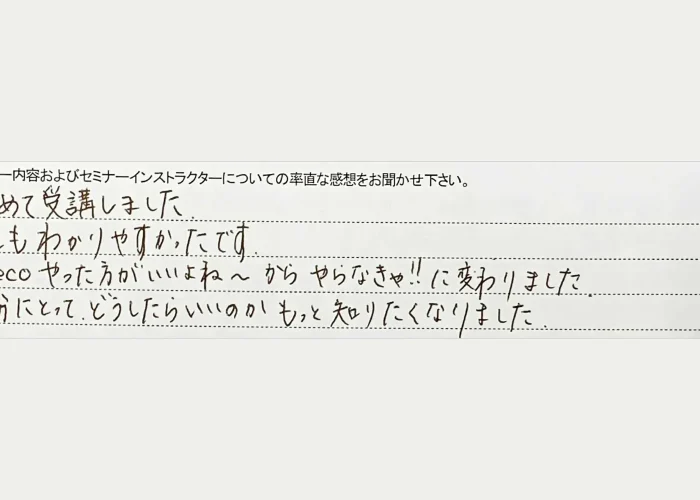 ー内容およびセミナーインストラクターについての率直な感想をお聞かせ下さい。
めて受講しました.
もわかりやすかったです.
eco やった方がいいよね～ から やらなきゃ!! に変わりました.
にとって、どうしたらいいのか もっと知りたくなりました.